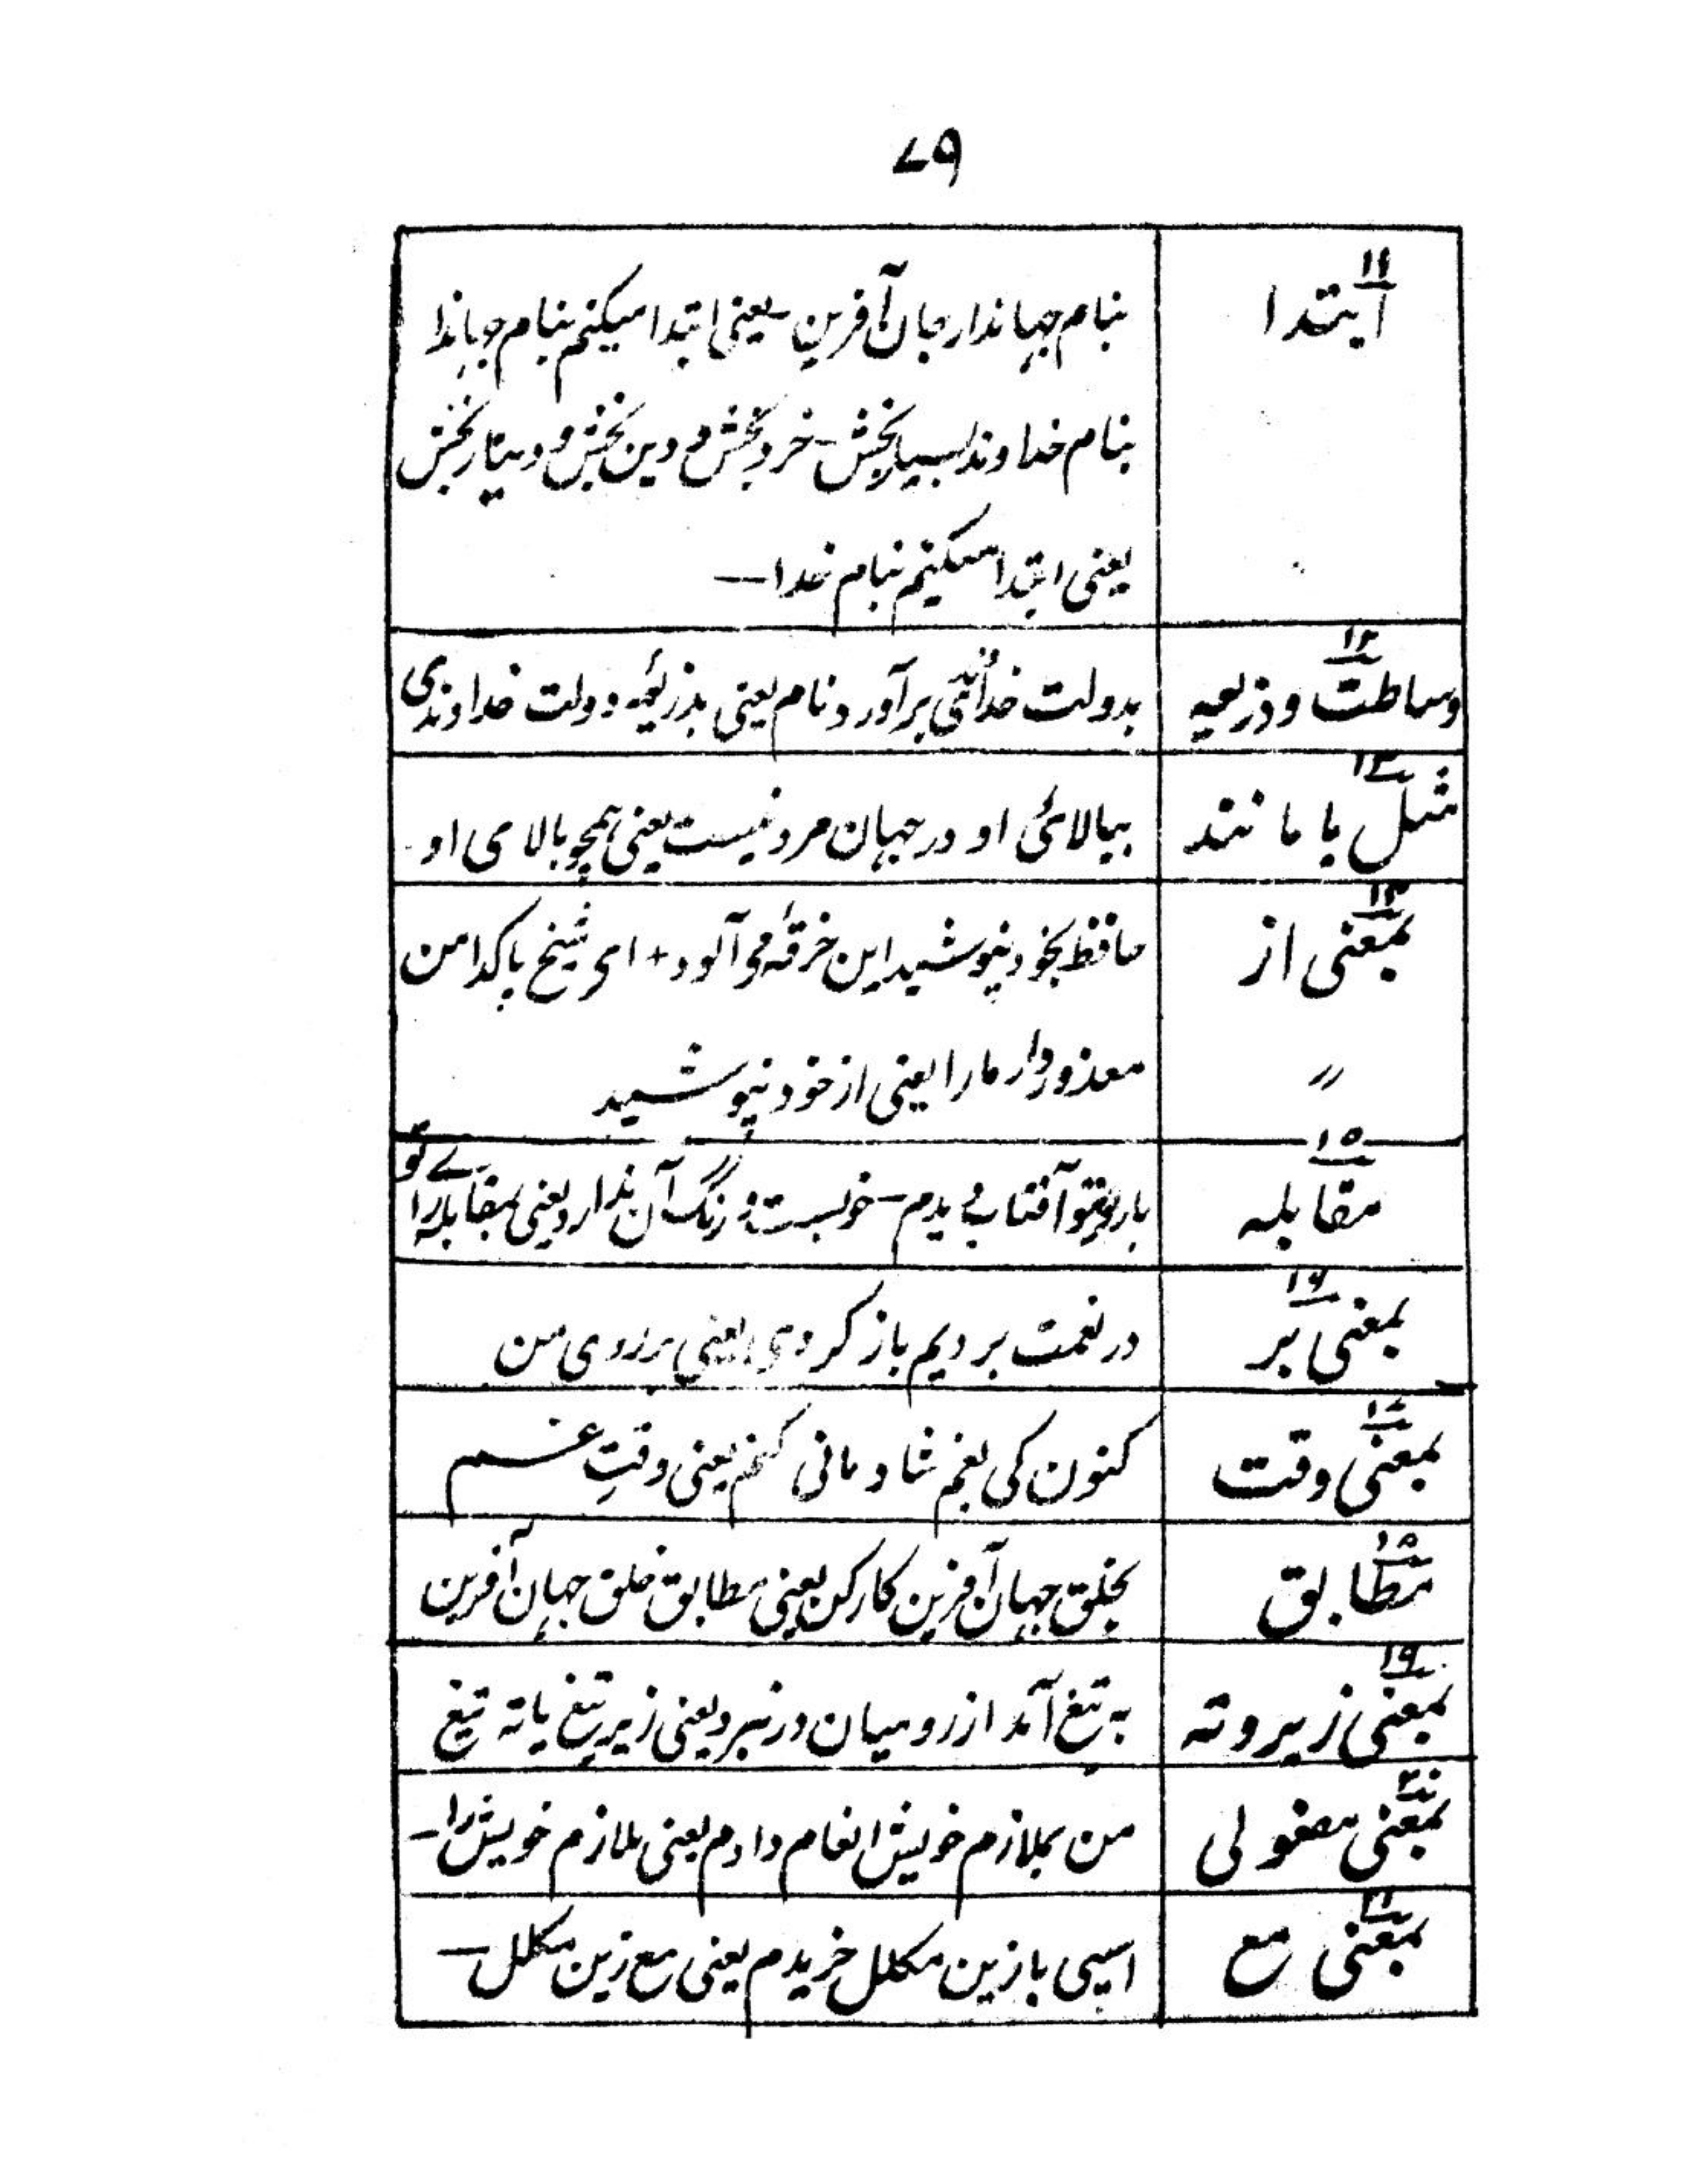 ۷۹
۱۱
ابتدا
بنام جہاندار جان آفرین - یعنی ابتدا میکنم بنام جہاندا
بنام خداوند بسیار بخش - خرد بخش و دین بخش و دینار بخش
یعنی ابتدا میکنم بنام خدا —
۱۲
وساطت و ذریعہ
بدولت خدائی برآورد نام یعنی بذریعہ دولت خداوندی
۱۳
مثل یا مانند
ببالائی او در جہان مرد نیست یعنی ہمچو بالای او -
۱۴
بمعنی از
حافظ بخود نپوشید این خرقہ می آلود + ای شیخ پاکدامن
〃
معذور دار ما را یعنی از خود نپوشید
۱۵
مقابلہ
با روی تو آفتاب دیدم - خوبست و رنگ آن ندارد یعنی بمقابلہ را تو
۱۶
بمعنی بر
در نعمت برویم باز کردی یعنی بر روی من
۱۷
بمعنی وقت
کنون کی بغم شادمانی کنم یعنی وقتِ غم
۱۸
مطابق
بخلق جہان آفرین کار کن یعنی مطابق خلق جہان آفرین
۱۹
بمعنی زیر و تہ
بہ تیغ آمد از رومیان در نبرد یعنی زیر تیغ یا تہ تیغ
۲۰
بمعنی مفعولی
من بملازم خویش انعام دادم یعنی ملازم خویش را -
۲۱
بمعنی مع
اسپی با زین مکلل خریدم یعنی مع زین مکلل —